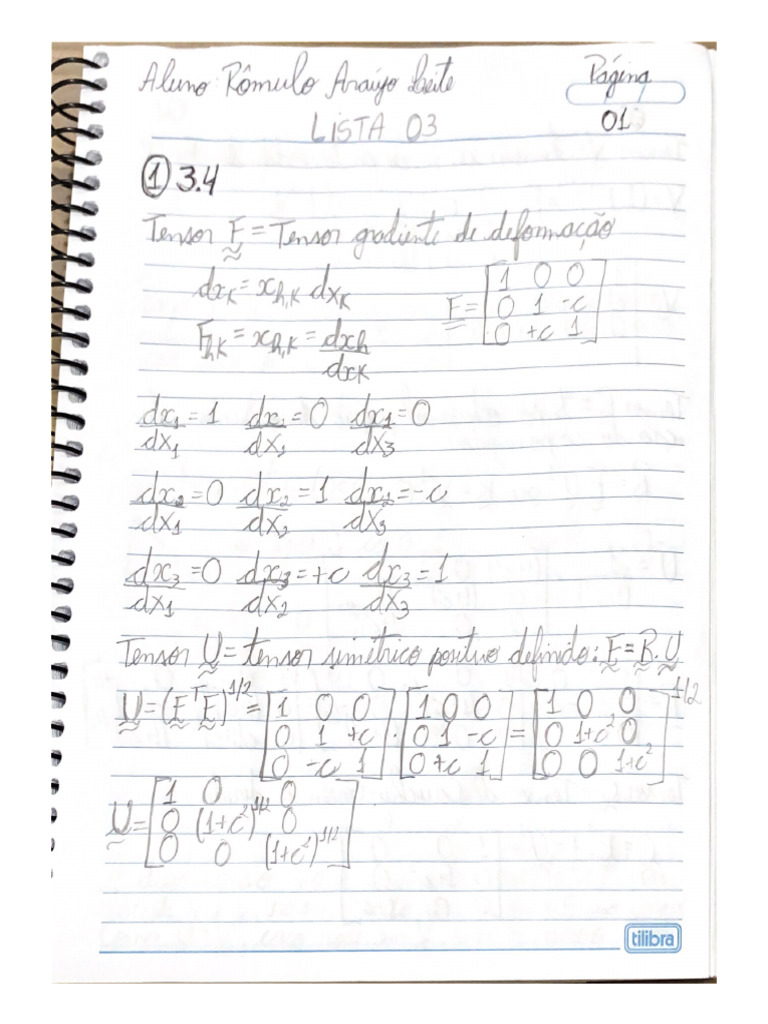 Aluno: Rômulo Araújo Leite
Página
01
LISTA 03
① 3.4
Tensor F = Tensor gradiente de deformação
dxₖ = x_{k,K} dx_K
F_{kK} = x_{k,K} = dx_k/dx_K
F = [1 0 0; 0 1 -c; 0 +c 1]
dx₁/dX₁ = 1 dx₁/dX₂ = 0 dx₁/dX₃ = 0
dx₂/dX₁ = 0 dx₂/dX₂ = 1 dx₂/dX₃ = -c
dx₃/dX₁ = 0 dx₃/dX₂ = +c dx₃/dX₃ = 1
Tensor U = tensor simétrico positivo definido: F = R.U
U = (FᵀF)^{1/2} = [1 0 0; 0 1 +c; 0 -c 1] · [1 0 0; 0 1 -c; 0 +c 1] = [1 0 0; 0 1+c² 0; 0 0 1+c²]^{1/2}
U = [1 0 0; 0 (1+c²)^{1/2} 0; 0 0 (1+c²)^{1/2}]
tilibra